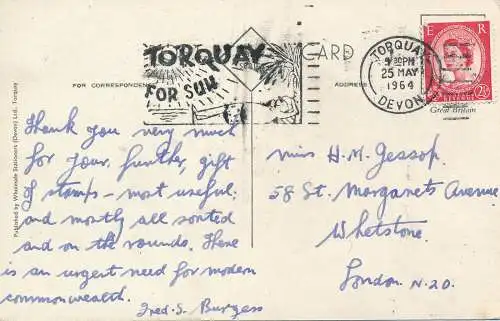 TORQUAY
FOR SUN
CARD
FOR CORRESPONDENCE
ADDRESS
TORQUAY
9 PM
25 MAY
1964
DEVON
E R
2½
Great Britain
Published by Wholesale Stationers (Devon) Ltd., Torquay
Thank you very much
for your, further, gift
of stamps - most useful;
and mostly all sorted
and on the rounds. There
is an urgent need for modern
commonwealth.
Fred. S. Burgess
Miss H. M. Jessop.
58 St. Margarets Avenue
Whetstone.
London N.20.